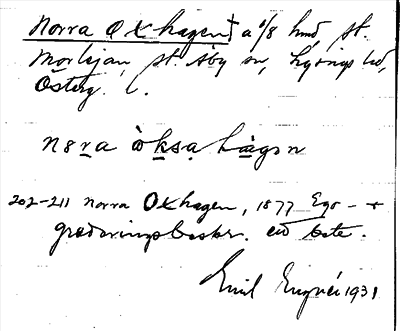 Norra Oxhagen † a 0/8 hmd st.
Morlejan, st. Åby sn, Lysings hd,
Österg. l.
nɵra òksa hagən
202–211 Norra Oxhagen, 1877 Ego – +
graderingsbeskr.
Emil 1931